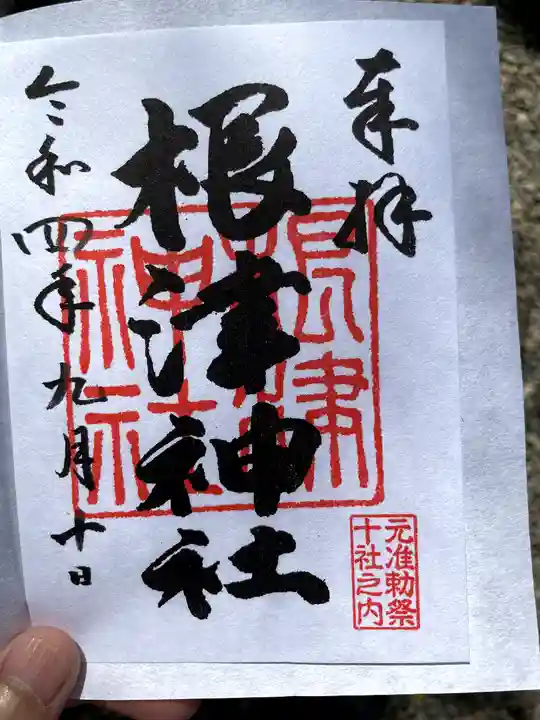 奉拝
根津神社
根津神社
元准勅祭
十社之内
令和四年九月十日